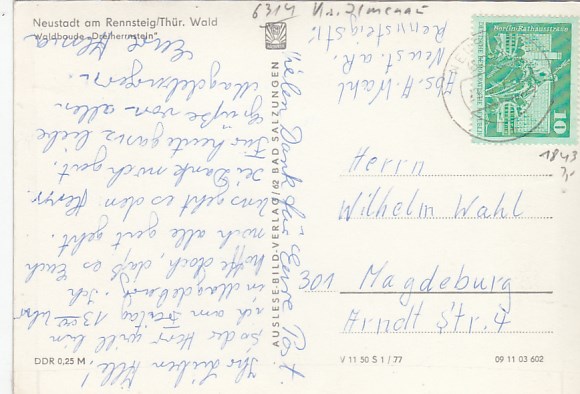 Neustadt am Rennsteig/Thür. Wald
Waldbaude „Dreiherrnstein"
Ihr Lieben Alle!
So der Herr will bin
ich am Freitag 13 00 Uhr
in Magdeburg. Ich
hoffe doch, daß es Euch
noch alle gut geht.
Uns geht es dem Herrn
sei Dank noch gut.
Für heute ganz liebe
Grüße von allen
Magdeburgern.
Eure
Vielen Dank für Eure Post.
DDR 0,25 M
AUSLESE-BILD-VERLAG/62 BAD SALZUNGEN
6314 Kr. Ilmenau
Abs. H. Wahl
Neust. a. R.
Rennsteigstr.
Berlin · Rathausstraße
10
1843
Herrn
Wilhelm Wahl
301 Magdeburg
Arndt Str.
V 11 50 S 1/77
09 11 03 602